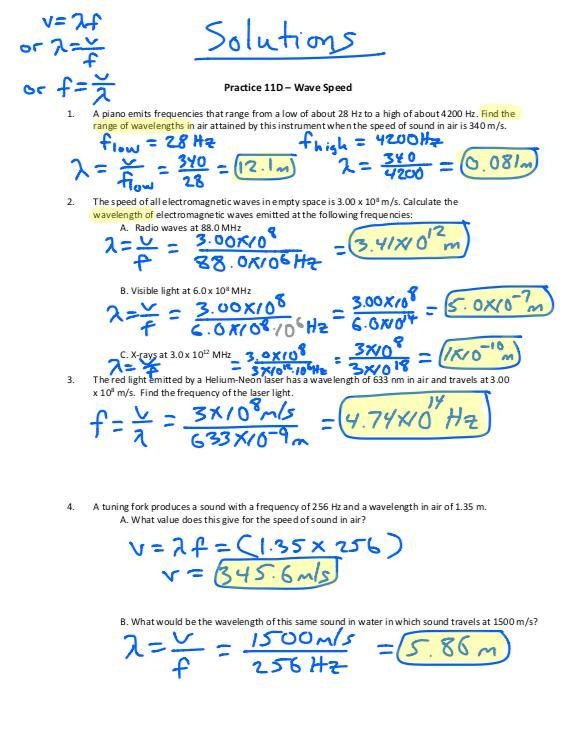 v = λf
or λ = v/f
or f = v/λ
Solutions
Practice 11D – Wave Speed
1. A piano emits frequencies that range from a low of about 28 Hz to a high of about 4200 Hz. Find the
range of wavelengths in air attained by this instrument when the speed of sound in air is 340 m/s.
f low = 28 Hz f high = 4200Hz
λ = v/f low = 340/28 = 12.1m λ = 340/4200 = 0.081m
2. The speed of all electromagnetic waves in empty space is 3.00 x 10⁸ m/s. Calculate the
wavelength of electromagnetic waves emitted at the following frequencies:
A. Radio waves at 88.0 MHz
λ = v/f = 3.00x10⁸/88.0x10⁶ Hz = 3.41x10¹² m
B. Visible light at 6.0 x 10⁸ MHz
λ = v/f = 3.00x10⁸/6.0x10⁸·10⁶ Hz = 3.00x10⁸/6.0x10¹⁴ = 5.0x10⁻⁷ m
C. X-rays at 3.0 x 10¹² MHz
λ = v/f = 3.0x10⁸/3x10¹²·10⁶Hz = 3x10⁸/3x10¹⁸ = 1x10⁻¹⁰ m
3. The red light emitted by a Helium-Neon laser has a wavelength of 633 nm in air and travels at 3.00
x 10⁸ m/s. Find the frequency of the laser light.
f = v/λ = 3x10⁸ m/s/633x10⁻⁹ m = 4.74x10¹⁴ Hz
4. A tuning fork produces a sound with a frequency of 256 Hz and a wavelength in air of 1.35 m.
A. What value does this give for the speed of sound in air?
v = λf = (1.35 x 256)
v = 345.6 m/s
B. What would be the wavelength of this same sound in water in which sound travels at 1500 m/s?
λ = v/f = 1500 m/s/256 Hz = 5.86 m